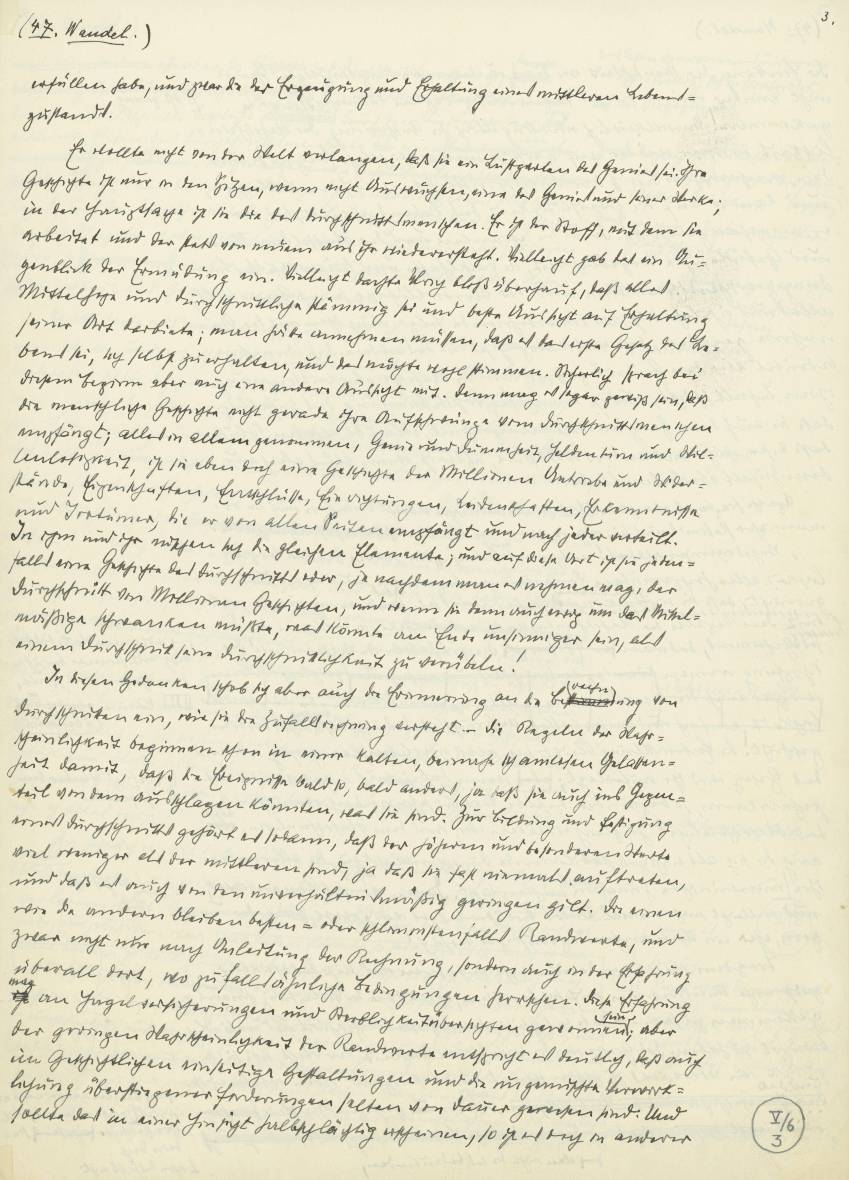 3.
(47. Wandel.)
erfüllen habe, und zwar die der Erzeugung und Erhaltung eines mittleren Lebens-
zustands.
Er wollte nicht von der Welt verlangen, daß sie ein Lustgarten des Genies sei. Ihre
Geschichte ist nur in den Spitzen, wenn nicht Auswüchsen, eine des Genies und seiner Werke;
in der Hauptsache ist sie die des Durchschnittsmenschen. Er ist der Stoff, mit dem sie
arbeitet und der stets von neuem aus ihr wiederersteht. Vielleicht gab das ein Au-
genblick der Ermüdung ein. Vielleicht dachte Ulrich bloß überhaupt, daß alles
Mittelhohe und Durchschnittliche stämmig sei und beste Aussicht auf Erhaltung
seiner Art darbiete; man hätte annehmen müssen, daß es das erste Gesetz des Le-
bens sei, sich selbst zu erhalten, und das mochte wohl stimmen. Sicherlich sprach bei
diesem Beginn aber auch eine andere Aussicht mit. Denn mag es sogar gewiß sein, daß
die menschliche Geschichte nicht gerade ihre Aufschwünge vom Durchschnittsmenschen
empfängt; alles in allem genommen, Genie und Dummheit, Heldentum und Wil-
lenlosigkeit, ist sie eben doch eine Geschichte der Millionen Antriebe und Wider-
stände, Eigenschaften, Entschlüsse, Einrichtungen, Leidenschaften, Erkenntnisse
und Irrtümer, die er von allen Seiten empfängt und nach jeder verteilt.
In ihm und ihr mischen sich die gleichen Elemente; und auf diese Art ist sie jeden-
falls eine Geschichte des Durchschnitts oder, je nachdem man es nehmen mag, der
Durchschnitt von Millionen Geschichten, und wenn sie denn auch ewig um das Mittel-
mäßige schwanken müßte, was könnte am Ende unsinniger sein, als
einem Durchschnitt seine Durchschnittlichkeit zu verübeln!
In diesen Gedanken schob sich aber auch die Erinnerung an die Berechnung von
Durchschnitten ein, wie sie die Zufallsrechnung versteht. – Die Regeln der Wahr-
scheinlichkeit beginnen schon in einer kalten, beinahe schamlosen Gelassen-
heit damit, daß die Ereignisse bald so, bald anders, ja daß sie auch ins Gegen-
teil von dem ausschlagen könnten, was sie sind. Zur Bildung und Festigung
eines Durchschnitts gehört es sodann, daß der höheren und besonderen Werte
viel weniger als der mittleren sind, ja daß sie fast niemals auftreten,
und daß es auch von den unverhältnismäßig geringen gilt. Die einen
wie die andern bleiben besten- oder schlimmstenfalls Randwerte, und
zwar nicht nur nach Anleitung der Rechnung, sondern auch in der Erfahrung
überall dort, wo zufallsähnliche Bedingungen herrschen. Diese Erfahrung
mag an Hagelversicherungen und Sterblichkeitsübersichten gewonnen sein; aber
der geringen Wahrscheinlichkeit der Randwerte entspricht es deutlich, daß auch
im Geschichtlichen einseitige Gestaltungen und die ungemischte Verwirk-
lichung überstiegener Forderungen selten von Dauer gewesen sind. Und
sollte das in einer Hinsicht halbschlächtig erscheinen, so ist es doch in anderer
V/6
3